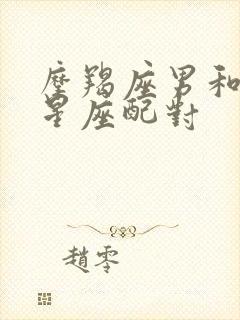 摩羯座男和
星座配對
趙零